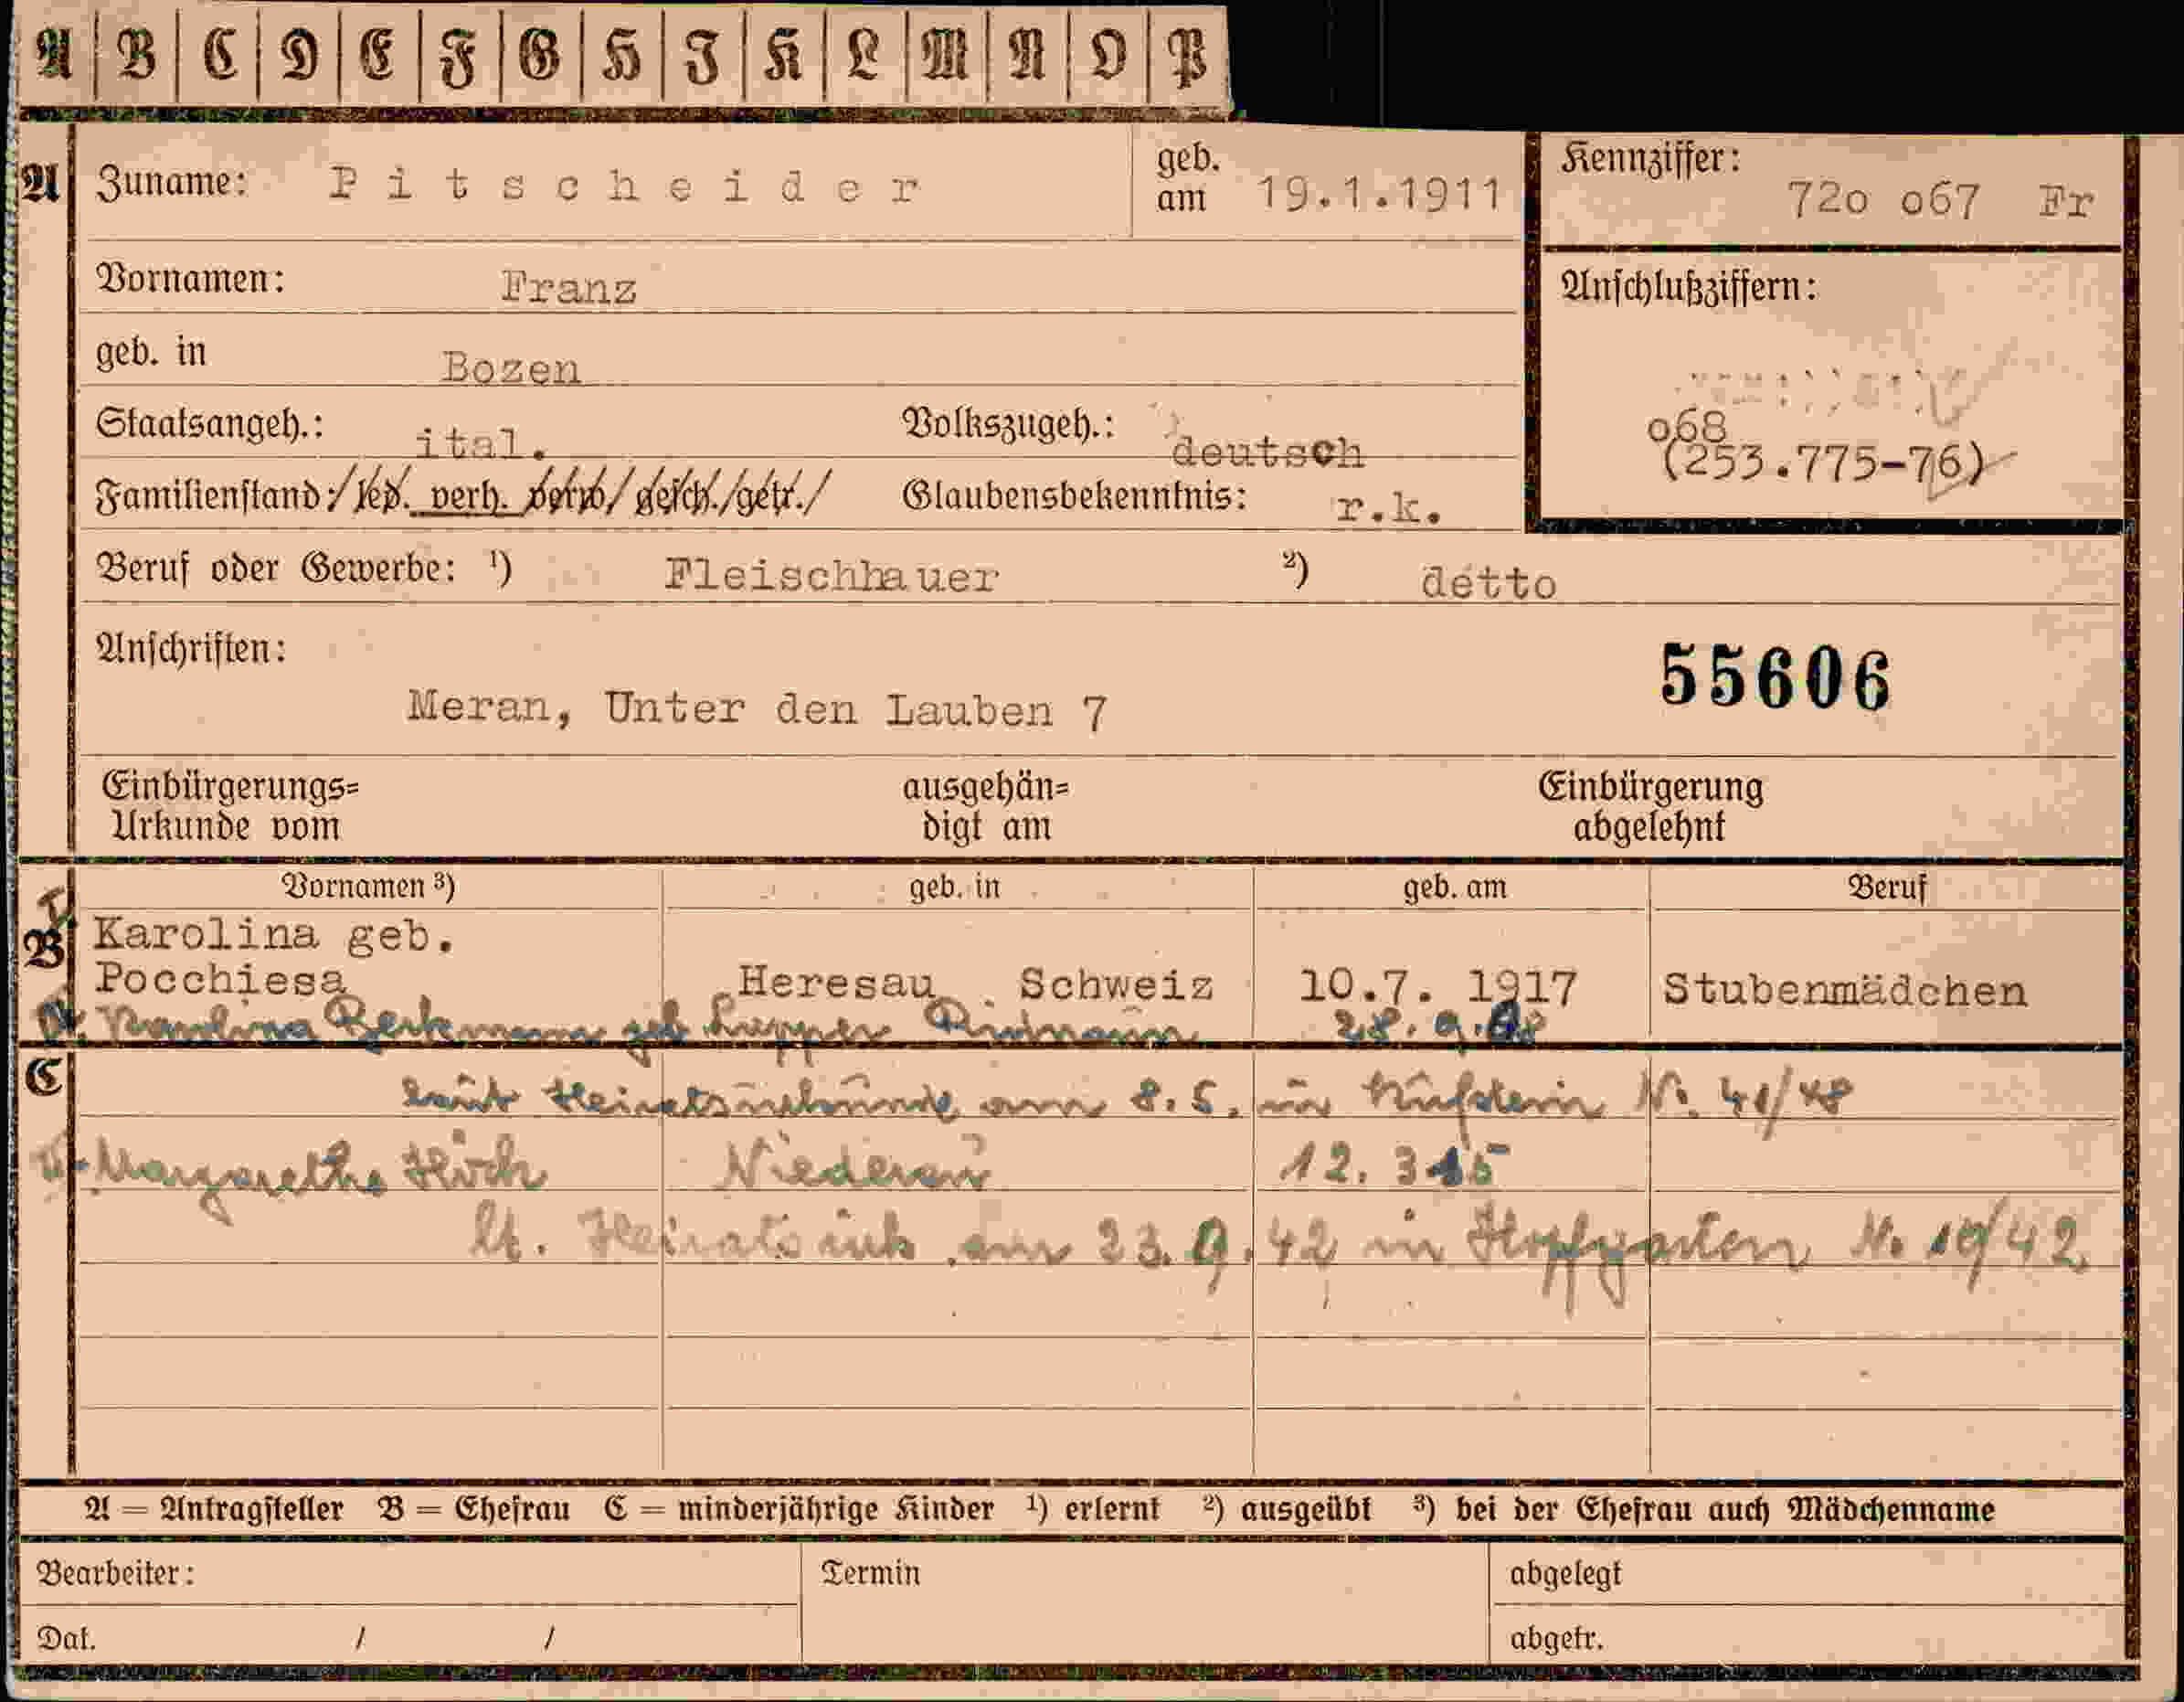 A B C D E F G H I K L M N O P
A Zuname: Pitscheider geb. am 19.1.1911 Kennziffer: 72o o67 Fr
Vornamen: Franz Anschlußziffern:
geb. in Bozen
o68
Staatsangeh.: ital. Volkszugeh.: deutsch (253.775-76)
Familienstand: led. verh. verw. gesch. getr. Glaubensbekenntnis: r.k.
Beruf oder Gewerbe: ¹) Fleischhauer ²) detto
Anschriften: 55606
Meran, Unter den Lauben 7
Einbürgerungs= ausgehän= Einbürgerung
Urkunde vom digt am abgelehnt
Vornamen ³) geb. in geb. am Beruf
B Karolina geb.
Pocchiesa Heresau Schweiz 10.7. 1917 Stubenmädchen
Karolina geb. 28.9.
C
laut Heiratsurkunde am 8.5. in Kufstein Nr. 41/48
Margarethe Niederau 12. 3
lt. Heiratsurk. am 23.9.42 in Hopfgarten Nr. /42
A = Antragsteller B = Ehefrau C = minderjährige Kinder ¹) erlernt ²) ausgeübt ³) bei der Ehefrau auch Mädchenname
Bearbeiter: Termin abgelegt
Dat. / / abgetr.